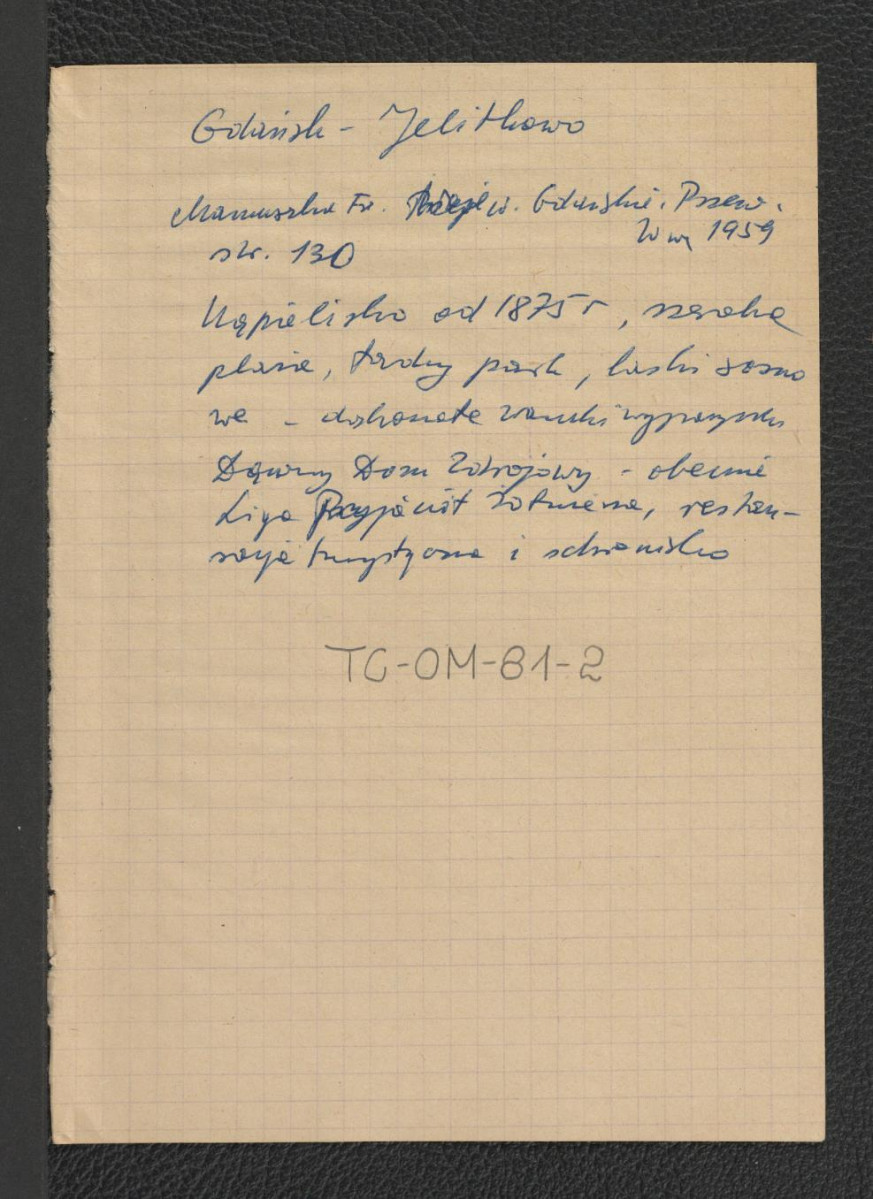 Gdańsk - Jelitkowo
Mamuszka Fr. Woj. Gdańskie. Przew.
W-wa 1959
str. 130
Kąpielisko od 1875 r, szeroka
plaża, ładny park, laski sosno
we - doskonałe warunki wypoczynku
Dawny Dom Zdrojowy - obecnie
Liga Przyjaciół Żołnierza, restau-
racja turystyczna i schronisko
TC-OM-81-2